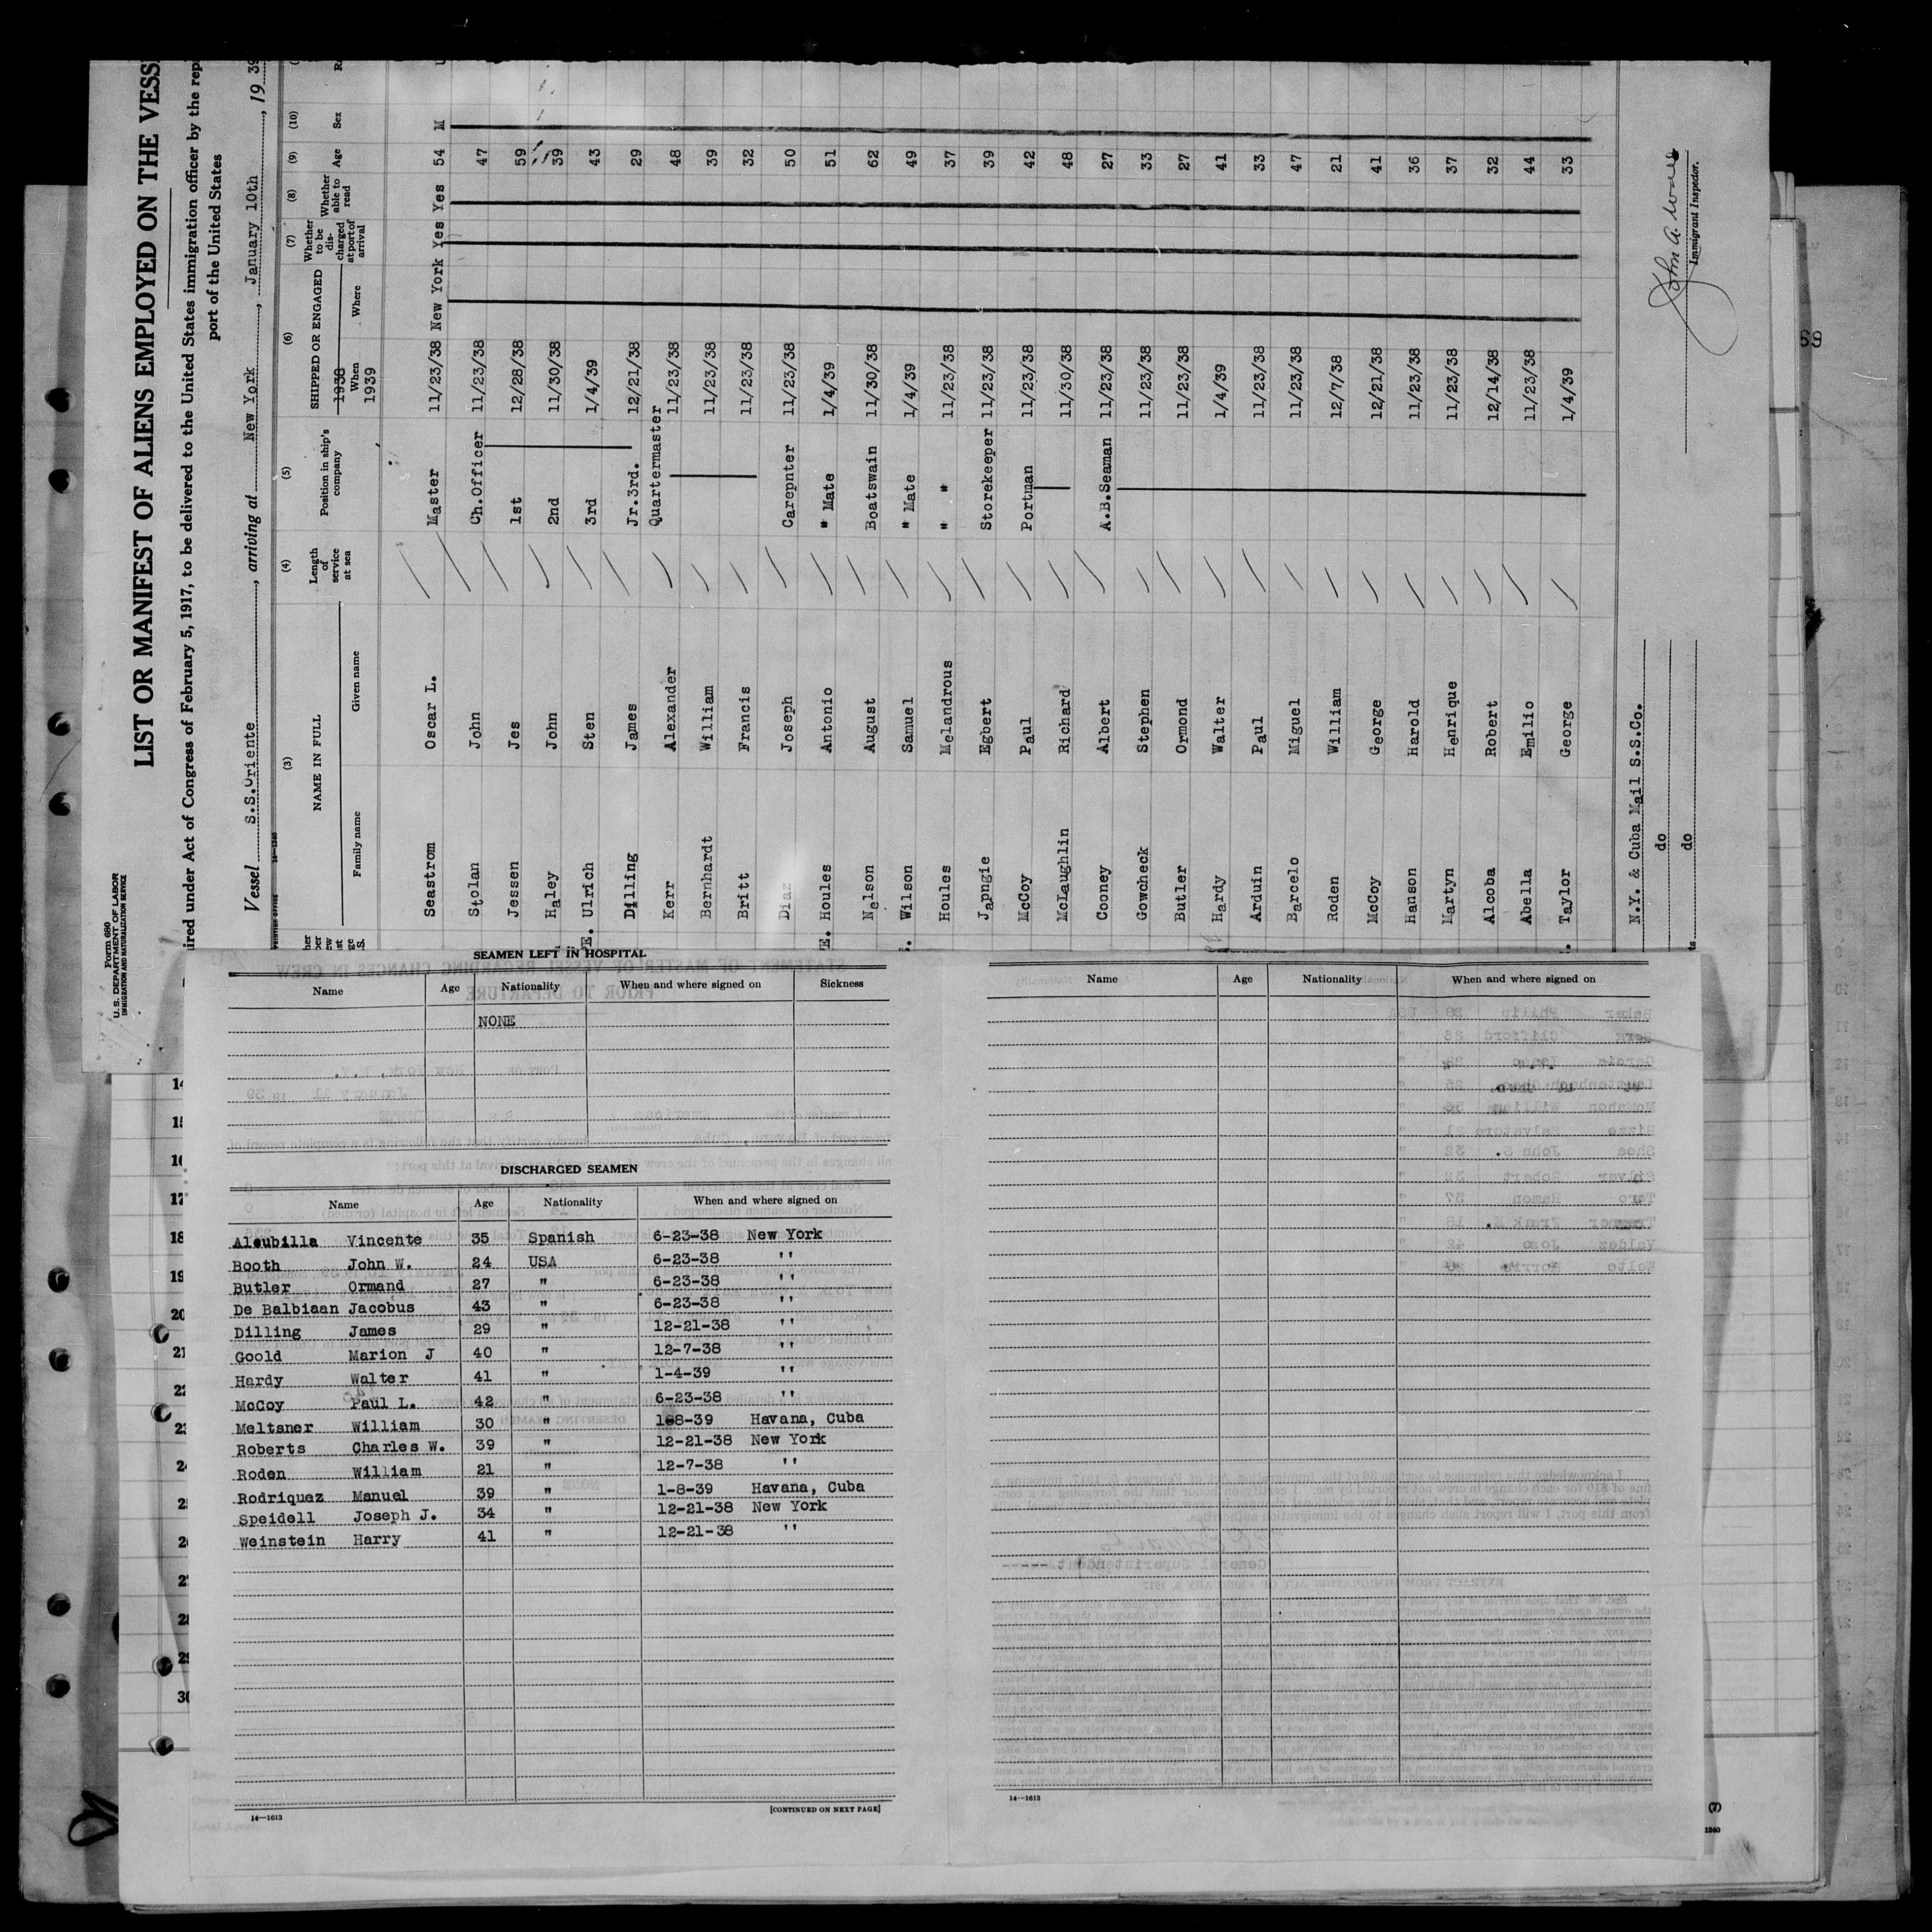 Form 680
U. S. DEPARTMENT OF LABOR
IMMIGRATION AND NATURALIZATION SERVICE
LIST OR MANIFEST OF ALIENS EMPLOYED ON THE VESS
ired under Act of Congress of February 5, 1917, to be delivered to the United States immigration officer by the rep
port of the United States
Vessel S.S.Oriente, arriving at New York, January 10th, 19 39
14-1240
(3) (4) (5) (6) (7) (8) (9) (10)
NAME IN FULL
Family name Given name
Length of service at sea
Position in ship's company
SHIPPED OR ENGAGED
1938
When Where
1939
Whether to be discharged at port of arrival
Whether able to read
Age
Sex
Seastrom Oscar L. Master 11/23/38 New York Yes Yes 54 M
Stolan John Ch.Officer 11/23/38 47
Jessen Jes 1st 12/28/38 59
Haley John 2nd 11/30/38 39
E. Ulrich Sten 3rd 1/4/39 43
Dilling James Jr.3rd. 12/21/38 29
Kerr Alexander Quartermaster 11/23/38 48
Bernhardt William 11/23/38 39
Britt Francis 11/23/38 32
Diaz Joseph Carepnter 11/23/38 50
E. Houles Antonio " Mate 1/4/39 51
Nelson August Boatswain 11/30/38 62
Wilson Samuel " Mate 1/4/39 49
Houles Melandrous " " 11/23/38 37
Japngie Egbert Storekeeper 11/23/38 39
McCoy Paul Portman 11/23/38 42
McLaughlin Richard 11/30/38 48
Cooney Albert A.B.Seaman 11/23/38 27
Gowcheck Stephen 11/23/38 33
Butler Ormond 11/23/38 27
Hardy Walter 1/4/39 41
Arduin Paul 11/23/38 33
Barcelo Miguel 11/23/38 47
Roden William 12/7/38 21
McCoy George 12/21/38 41
Hanson Harold 11/23/38 36
Martyn Henrique 11/23/38 37
Alcoba Robert 12/14/38 32
Abella Emilio 11/23/38 44
Taylor George 1/4/39 33
N.Y. & Cuba Mail S.S.Co.
do
do
Immigrant Inspector.
SEAMEN LEFT IN HOSPITAL
Name Age Nationality When and where signed on Sickness
NONE
DISCHARGED SEAMEN
Name Age Nationality When and where signed on
Aloubilla Vincente 35 Spanish 6-23-38 New York
Booth John W. 24 USA 6-23-38 ''
Butler Ormand 27 " 6-23-38 ''
De Balbiaan Jacobus 43 " 6-23-38 ''
Dilling James 29 " 12-21-38 ''
Goold Marion J 40 " 12-7-38 ''
Hardy Walter 41 " 1-4-39 ''
McCoy Paul L. 42 " 6-23-38 ''
Meltsner William 30 " 1-8-39 Havana, Cuba
Roberts Charles W. 39 " 12-21-38 New York
Roden William 21 " 12-7-38 ''
Rodriquez Manuel 39 " 1-8-39 Havana, Cuba
Speidell Joseph J. 34 " 12-21-38 New York
Weinstein Harry 41 " 12-21-38 ''
14—1613
[CONTINUED ON NEXT PAGE]
Name Age Nationality When and where signed on
14—1613
14
15
16
17
18
19
20
21
22
23
24
25
26
27
28
29
30
1240